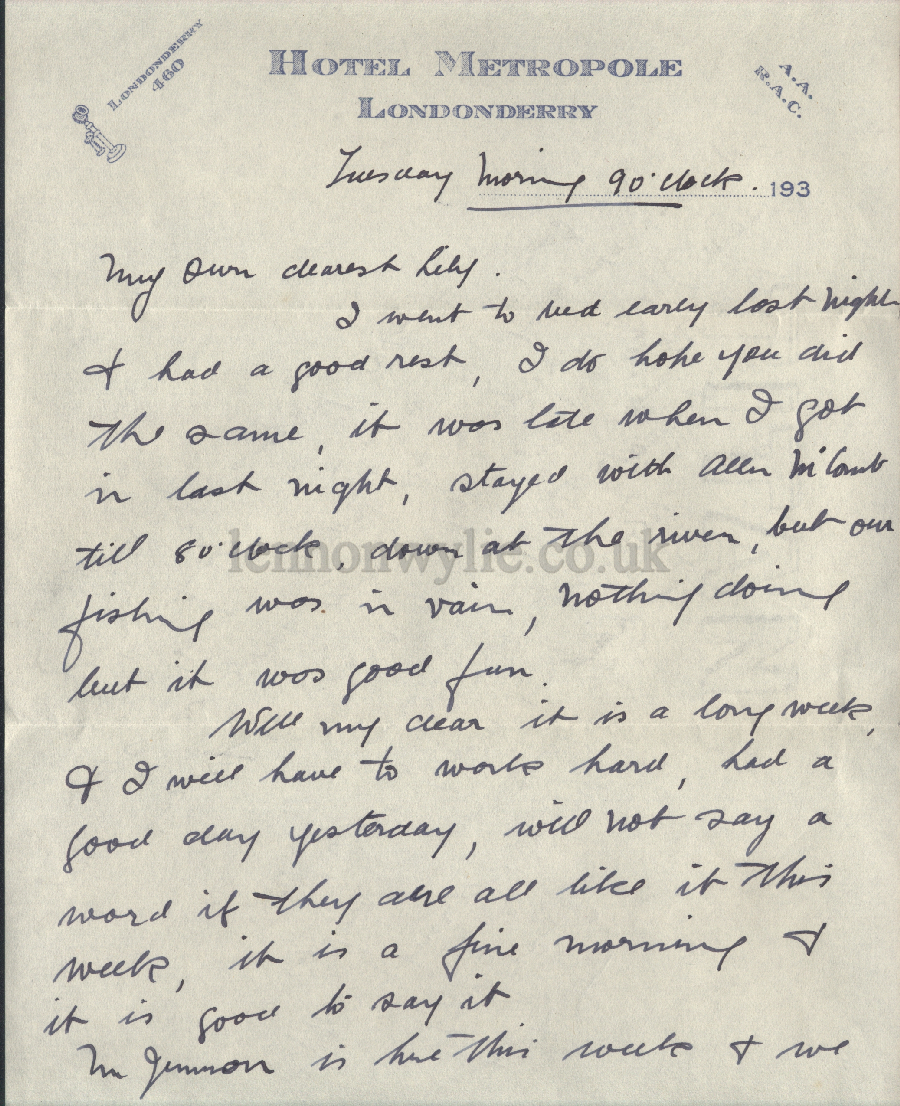 LONDONDERRY
460
HOTEL METROPOLE
LONDONDERRY
A.A.
R.A.C.
Tuesday Morning 9o'clock. 193
My own dearest Lily.
I went to bed early last night
& had a good rest, I do hope you did
the same, it was late when I got
in last night, stayed with Allen McComb
till 8o'clock, down at the river, but our
lennonwylie.co.uk
fishing was in vain, nothing doing
but it was good fun.
Well my dear it is a long week,
& I will have to work hard, had a
good day yesterday, will not say a
word if they are all like it this
week, it is a fine morning &
it is good to say it
Mr is here this week & we